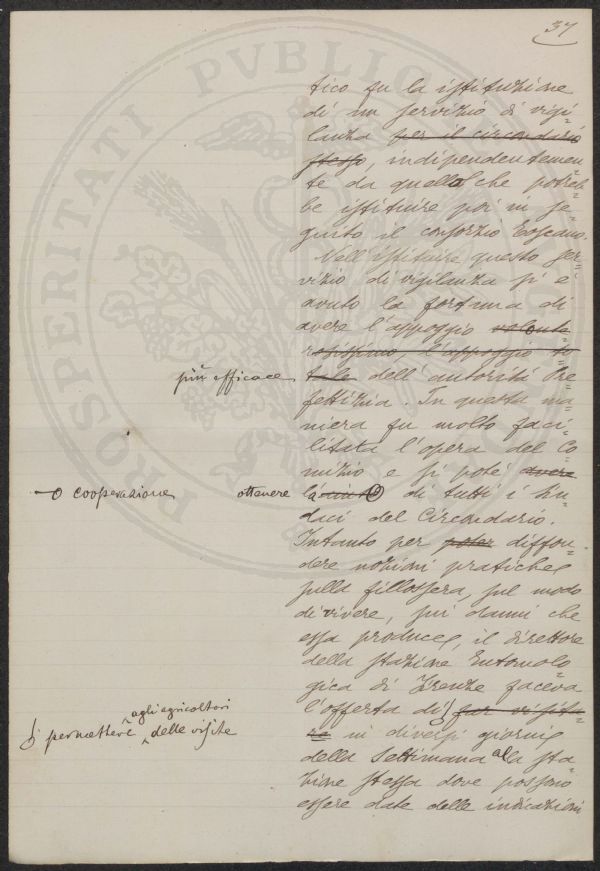 37
PROSPERITATI PVBLIC
tico fu la istituzione
di un servizio di vigi-
lanza per il circondario
stesso indipendentemen-
te da quello che potreb-
be istituire poi in se-
guito il consorzio toscano.
Nell'istituire questo ser-
vizio di vigilanza si è
avuto la fortuna di
avere l'appoggio volonte-
rosissimo, l'appoggio to-
più efficace tale dell'autorità Pre-
fettizia. In questa ma-
niera fu molto faci-
litata l'opera del Co-
mizio e si potè avere
cooperazione ottenere la di tutti i Sin-
daci del Circondario.
Intanto per poter diffon-
dere nozioni pratiche
sulla fillossera, sul modo
di vivere, sui danni che
essa produce, il direttore
della stazione Entomolo-
gica di Firenze faceva
agli agricoltori
l'offerta di far visita-
permettere delle visite
re in diversi giorni
della Settimana alla sta-
zione stessa dove possono
essere date delle indicazioni